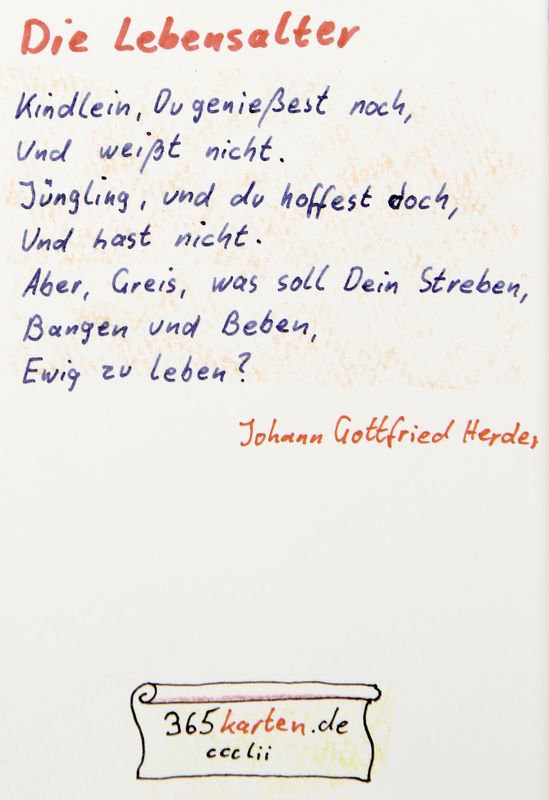 Die Lebensalter
Kindlein, Du genießest noch,
Und weißt nicht.
Jüngling, und du hoffest doch,
Und hast nicht.
Aber, Greis, was soll Dein Streben,
Bangen und Beben,
Ewig zu leben?
Johann Gottfried Herder
365karten.de
ccclii